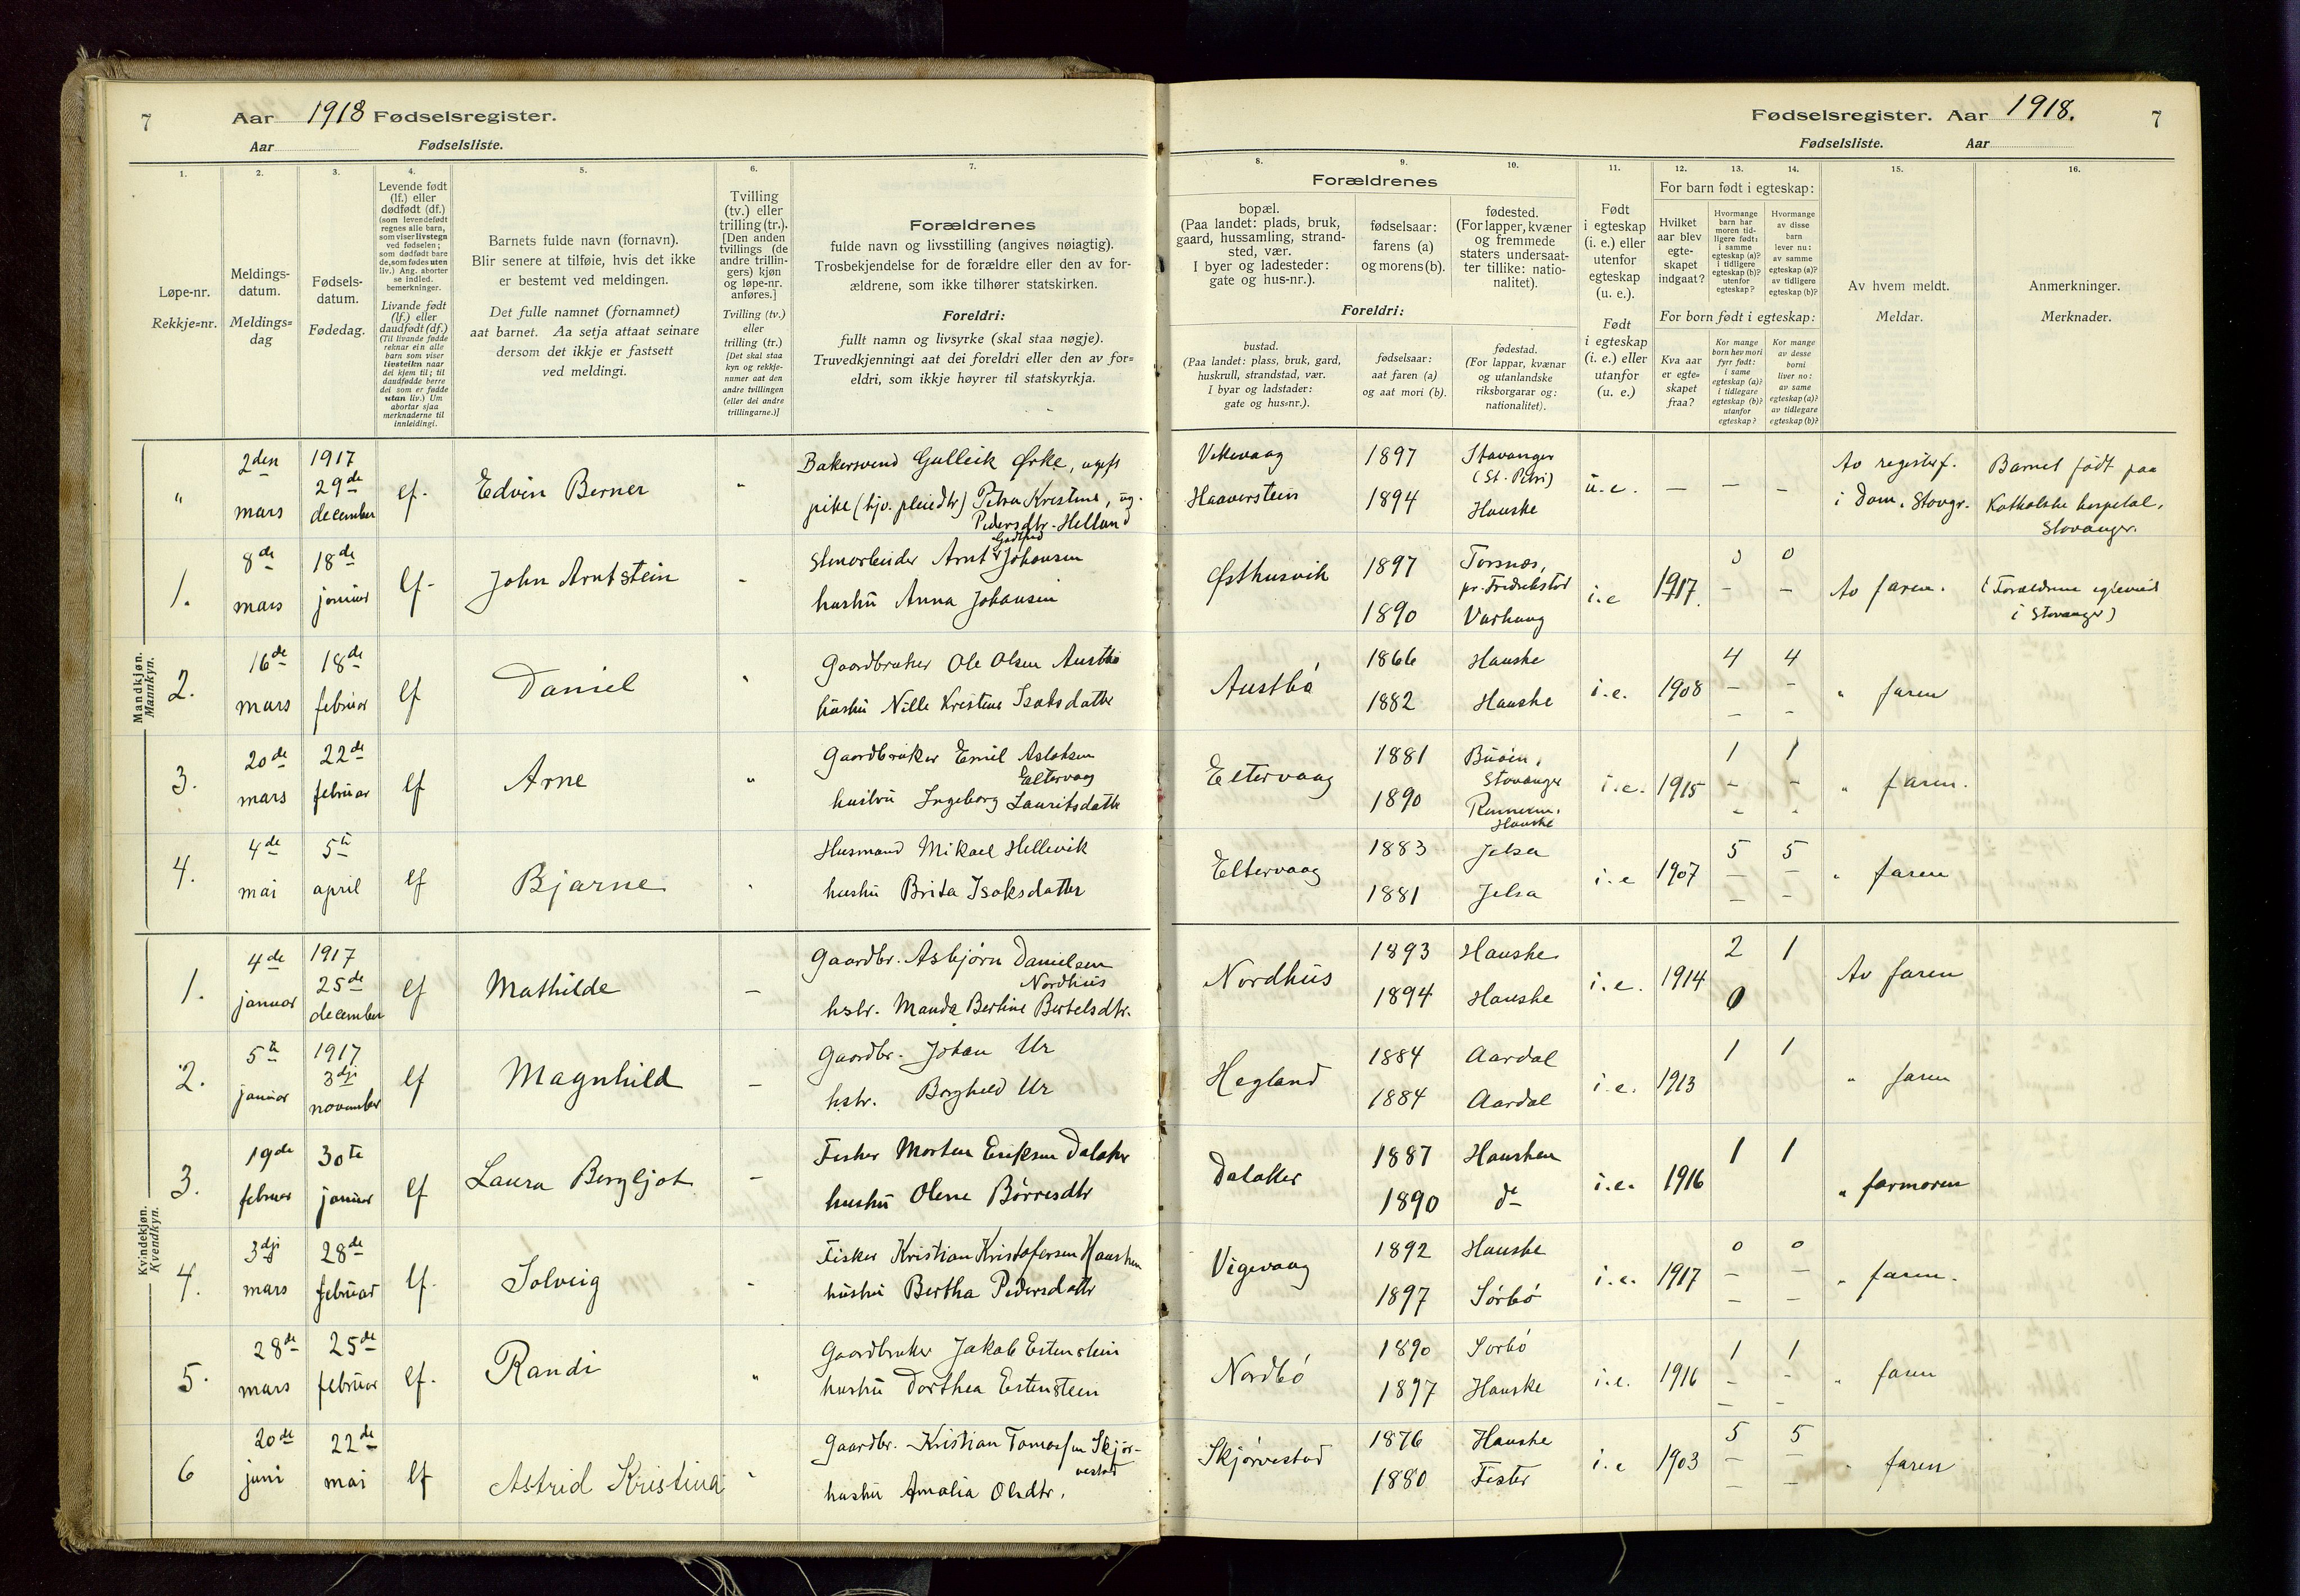 7 Aar 1918 Fødselsregister.
Aar Fødselsliste.
Fødselsregister. Aar 1918. 7
Fødselsliste. Aar
1. 2. 3. 4. 5. 6. 7.
Løpe-nr.
Rekkje=nr.
Meldings-
datum.
Meldings=
dag
Fødsels-
datum.
Fødedag.
Levende født
(lf.) eller
dødfødt (df.)
(som levendefødt
regnes alle barn,
som viser livstegn
ved fødselen;
som dødfødt bare
de, som fødes uten
liv.) Ang. aborter
se indled.
bemerkninger.
Livande født
(lf.) eller
daudfødt (df.)
(Til livande fødde
reknar ein alle
barn som viser
livsteikn naar
dei kjem til; til
daudfødde berre
dei som er fødde
utan liv.) Um
abortar sjaa
merknaderne til
innleidingi.
Barnets fulde navn (fornavn).
Blir senere at tilføie, hvis det ikke
er bestemt ved meldingen.
Det fulle namnet (fornamnet)
aat barnet. Aa setja attaat seinare
dersom det ikkje er fastsett
ved meldingi.
Tvilling
(tv.) eller
trilling (tr.).
[Den anden
tvillings (de
andre trillin-
gers) kjøn
og løpe-nr.
anføres.]
Tvilling (tv.)
eller
trilling (tr.)
[Det skal staa
kyn og rekkje-
numer aat den
andre tvillingen
(eller dei andre
trillingarne.)]
Forældrenes
fulde navn og livsstilling (angives nøiagtig).
Trosbekjendelse for de forældre eller den av for-
ældrene, som ikke tilhører statskirken.
Foreldri:
fullt namn og livsyrke (skal staa nøgje).
Truvedkjenningi aat dei foreldri eller den av for=
eldri, som ikkje høyrer til statskyrkja.
8. 9. 10. 11. 12. 13. 14. 15. 16.
Forældrenes
bopæl.
(Paa landet: plads, bruk,
gaard, hussamling, strand-
sted, vær.
I byer og ladesteder:
gate og hus-nr.).
fødselsaar:
farens (a)
og morens (b).
fødested.
(For lapper, kvæner
og fremmede
staters undersaat-
ter tillike: natio-
nalitet).
Foreldri:
bustad.
(Paa landet: plass, bruk, gard,
huskrull, strandstad, vær.
I byar og ladstader:
gate og hus=nr.).
fødselsaar:
aat faren (a)
og aat mori (b).
fødestad.
(For lappar, kvænar
og utanlandske
riksborgarar og:
nationalitet).
Født
i egteskap
(i. e.) eller
utenfor
egteskap
(u. e.).
Født
i egteskap
(i. e.) eller
utanfor
(u. e.)
For barn født i egteskap:
Hvilket
aar blev
egte-
skapet
indgaat?
Hvormange
barn har
moren tid-
ligere født:
i samme
egteskap (a)?
i tidligere
egteskap (b)?
utenfor
egteskap?
Hvormange
av disse
barn
lever nu:
av samme
egteskap (a)?
av tidligere
egteskap (b)?
For born født i egteskap:
Kva aar
er egte=
skapet
fraa?
Kor mange
born hev mori
fyrr født:
i same
egteskap (a)?
i tidlegare
egteskap (b)?
utanfor
egteskap?
Kor mange
av desse
borni
liver no:
av same
egteskap (a)?
av tidlegare
egteskap (b)?
Av hvem meldt.
Meldar.
Anmerkninger.
Merknader.
Mandkjøn.
Mannkyn.
" 2den mars 1917 29de december lf. Edvin Berner "
Bakersvend Gulleik Ørke, ugift
pike (hjv. pleiedtr) Petra Kristine,
Pedersdtr. Helland
Vikevaag 1897 Stavanger (St. Petri)
Haaverstein 1894 Hauske
u.e. — — — Av registerf. i Dom. Stavgr.
Barnet født paa
Katholske hospital,
Stavanger.
1. 8de mars 18de januar lf. John Arntstein -
Stenarbeider Arnt Godtfred Johansen
hustru Anna Johansen
Østhusvik 1897 Torsnæs, pr. Fredrikstad
1890 Varhaug
i.e 1917. 0 0 - - Av faren.
(Forældrene egteviet
i Stavanger)
2. 16de mars 18de februar lf Daniel "
Gaardbruker Ole Olsen Austbø
hustru Nille Kristine Isaksdatter
Austbø 1866 Hauske
1882 Hauske
i.e. 1908 4 4 - - - - " faren
3. 20de mars 22de februar lf Arne "
Gaardbruker Emil Aslaksen
Eltervaag
hustru Ingeborg Lauritsdattr
Eltervaag 1881 Buøen, Stavanger
1890 Rennesø, Hauske
i.e. 1915 1 1 - - - - " faren.
4. 4de mai 5te april lf Bjarne "
Husmand Mikael Hellevik
hustru Brita Isaksdatter
Eltervaag 1883 Jelsa
1881 Jelsa
i.e 1907 5 5 - - - - " faren
Kvindekjøn.
Kvendkyn.
1. 4de januar 1917 25de december lf Mathilde —
Gaardbr. Asbjørn Danielsen
Nordhus
hstr. Manda Bertine Bertelsdtr.
Nordhus 1893 Hauske
1894 Hauske
i.e. 1914 2 1 0 Av faren
2. 5te januar 1917 3dji november lf Magnhild —
Gaardbr. Johan Ur
hstr. Borghild Ur
Hegland 1884 Aardal
1884 Aardal
i.e. 1913 1 1 " faren
3. 19de februar 30te januar lf Laura Bergljot —
Fisker Morten Eriksen Dalaker
hustru Olene Børresdtr
Dalaker 1887 Hausken
1890 do
i.e. 1916 1 1 " farmoren
4. 3dji mars 28de februar lf. Solveig -
Fisker Kristian Kristofersen Hausken
hustru Bertha Pedersdattr
Vigevaag 1892 Hauske
1897 Sørbø
i.e. 1917 0 0 - - - - " faren.
5. 28de mars 25de februar lf. Randi "
Gaardbruker Jakob Estenstein
hustru Dorthea Estenstein
Nordbø 1890 Sørbø
1897 Hauske
i.e. 1916 1 1 - - - - " faren
6 20de juni 22de mai lf Astrid Kristina "
Gaardbr. Kristian Tomassen Skjør-
vestad
hustru Amalia Olsdtr.
Skjørvestad 1876 Hauske
1880 Fister
i.e 1903 5 5 - - - - " faren